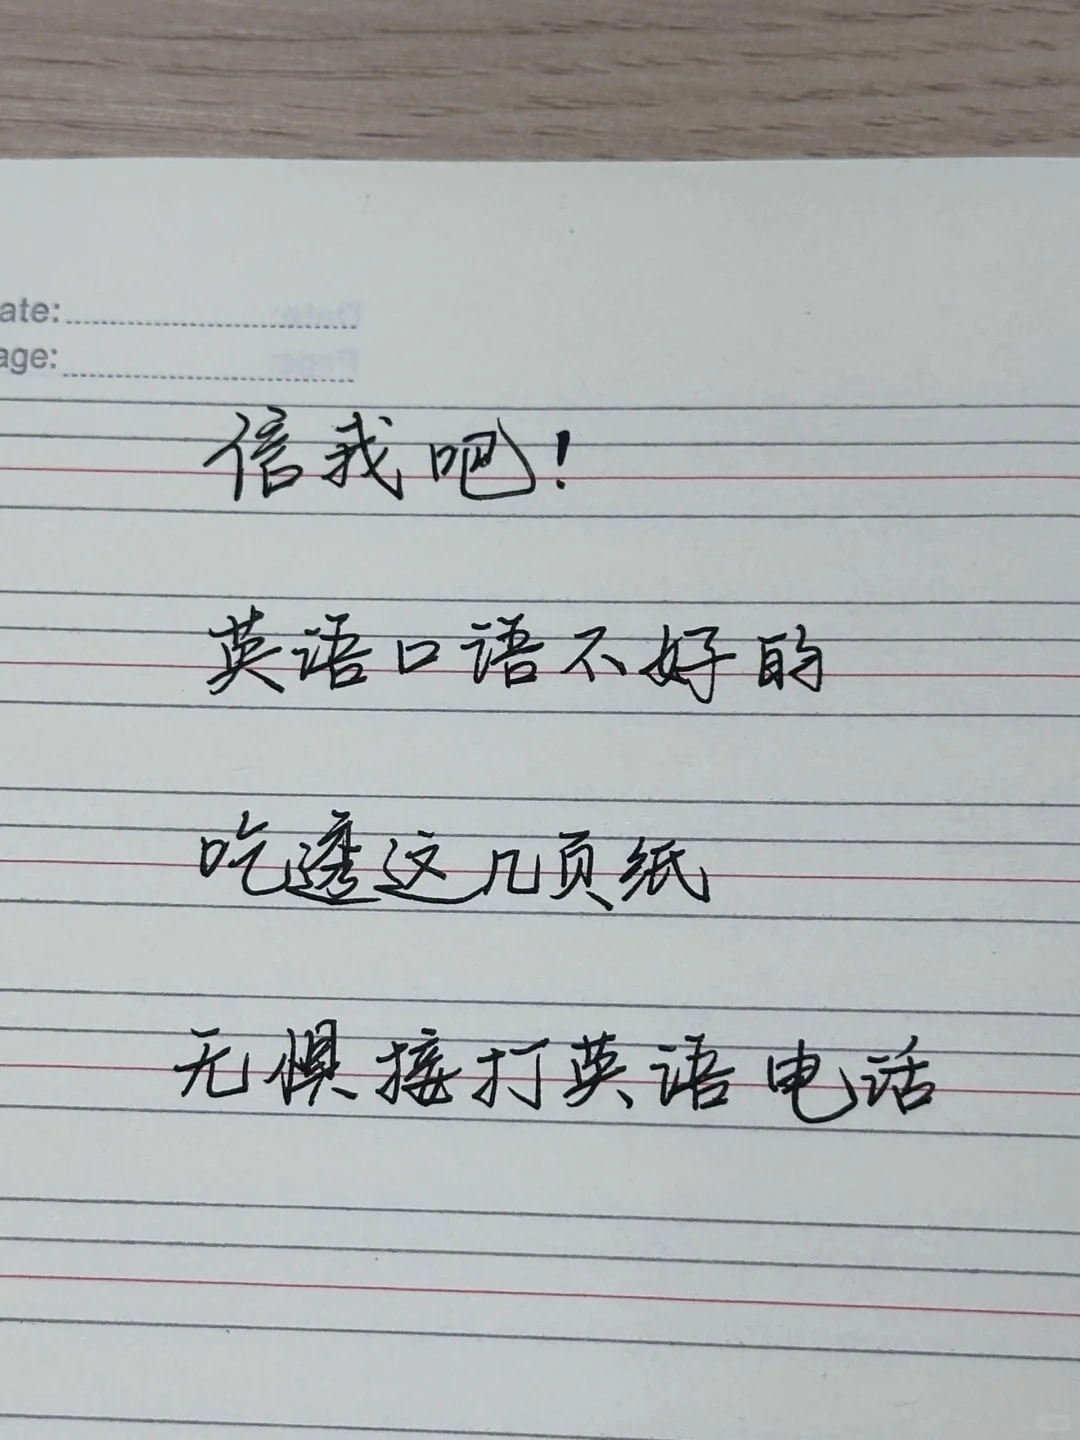 ate:
age:
信我吧!
英语口语不好的
吃透这几页纸
无惧接打英语电话